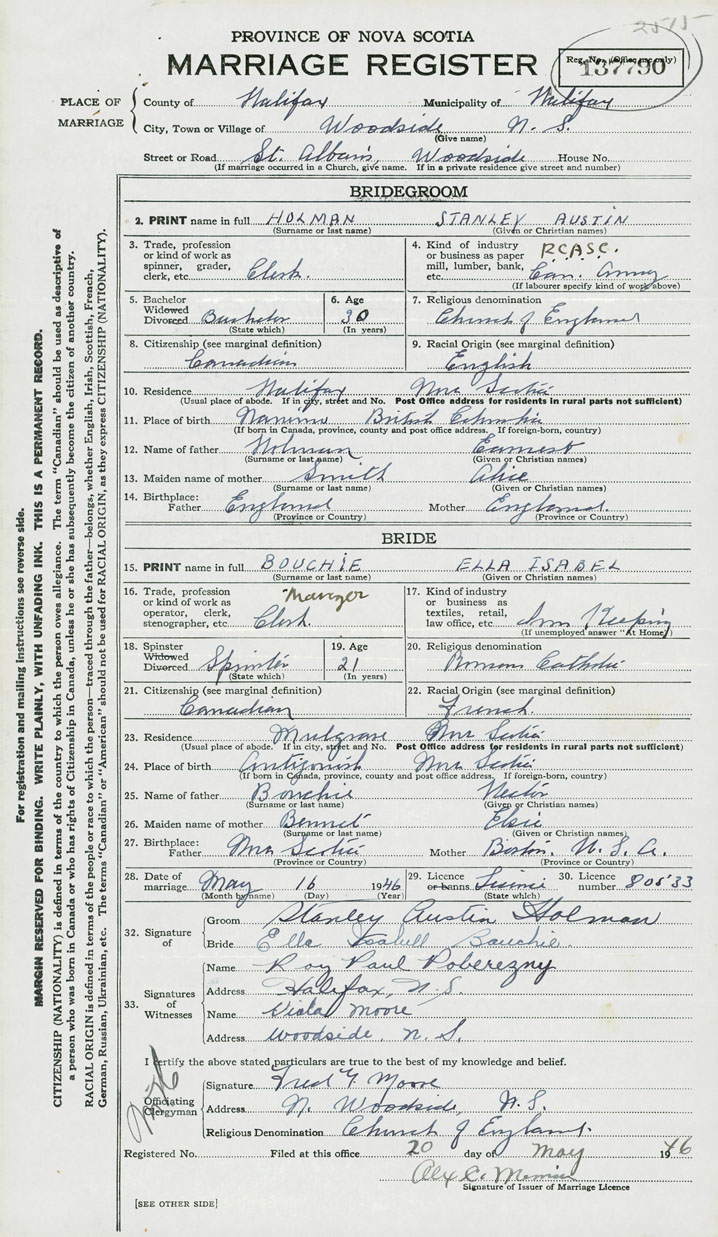 2515
PROVINCE OF NOVA SCOTIA
MARRIAGE REGISTER
Reg. No. (Office use only)
137790
PLACE OF MARRIAGE
County of Halifax Municipality of Halifax
City, Town or Village of Woodside, N. S.
(Give name)
Street or Road St. Albans, Woodside House No.
(If marriage occurred in a Church, give name. If in a private residence give street and number)
BRIDEGROOM
2. PRINT name in full HOLMAN STANLEY AUSTIN
(Surname or last name) (Given or Christian names)
3. Trade, profession or kind of work as spinner, grader, clerk, etc. Clerk.
4. Kind of industry or business as paper mill, lumber, bank, etc. R.C.A.S.C. Can. Army
(If labourer specify kind of work above)
5. Bachelor Widowed Divorced Bachelor
(State which)
6. Age 30
(In years)
7. Religious denomination
Church of England
8. Citizenship (see marginal definition)
Canadian
9. Racial Origin (see marginal definition)
English
10. Residence Halifax Nova Scotia
(Usual place of abode. If in city, street and No. Post Office address for residents in rural parts not sufficient)
11. Place of birth Nanaimo British Columbia
(If born in Canada, province, county and post office address. If foreign-born, country)
12. Name of father Holman Earnest
(Surname or last name) (Given or Christian names)
13. Maiden name of mother Smith Alice
(Surname or last name) (Given or Christian names)
14. Birthplace: Father England Mother England.
(Province or Country) (Province or Country)
BRIDE
15. PRINT name in full BOUCHIE ELLA ISABEL
(Surname or last name) (Given or Christian names)
16. Trade, profession or kind of work as operator, clerk, stenographer, etc. Manager Clerk.
17. Kind of industry or business as textiles, retail, law office, etc. Inn Keeping
(If unemployed answer "At Home")
18. Spinster Widowed Divorced Spinster
(State which)
19. Age 21
(In years)
20. Religious denomination
Roman Catholic
21. Citizenship (see marginal definition)
Canadian
22. Racial Origin (see marginal definition)
French.
23. Residence Mulgrave Nova Scotia
(Usual place of abode. If in city, street and No. Post Office address for residents in rural parts not sufficient)
24. Place of birth Antigonish Nova Scotia
(If born in Canada, province, county and post office address. If foreign-born, country)
25. Name of father Bouchie Hector
(Surname or last name) (Given or Christian names)
26. Maiden name of mother Bennet Elsie
(Surname or last name) (Given or Christian names)
27. Birthplace: Father Nova Scotia Mother Boston, U. S. A.
(Province or Country) (Province or Country)
28. Date of marriage May 16 1946
(Month by name) (Day) (Year)
29. Licence or banns License
(State which)
30. Licence number 80533
32. Signature of
Groom Stanley Austin Holman
Bride Ella Isabell Bouchie.
33. Signatures of Witnesses
Name Roy Paul Poberezny
Address Halifax, N.S.
Name Viola Moore
Address Woodside, N.S.
I certify the above stated particulars are true to the best of my knowledge and belief.
Officiating Clergyman
Signature Fred Y. Moore
Address N. Woodside, N.S.
Religious Denomination Church of England.
Registered No. Filed at this office 20 day of May 1946
Signature of Issuer of Marriage Licence
[SEE OTHER SIDE]
For registration and mailing instructions see reverse side.
MARGIN RESERVED FOR BINDING. WRITE PLAINLY, WITH UNFADING INK. THIS IS A PERMANENT RECORD.
CITIZENSHIP (NATIONALITY) is defined in terms of the country to which the person owes allegiance. The term "Canadian" should be used as descriptive of
a person who was born in Canada or who has rights of Citizenship in Canada, unless he or she has subsequently become the citizen of another country.
RACIAL ORIGIN is defined in terms of the people or race to which the person—traced through the father—belongs, whether English, Irish, Scottish, French,
German, Russian, Ukrainian, etc. The terms "Canadian" or "American" should not be used for RACIAL ORIGIN, as they express CITIZENSHIP (NATIONALITY).